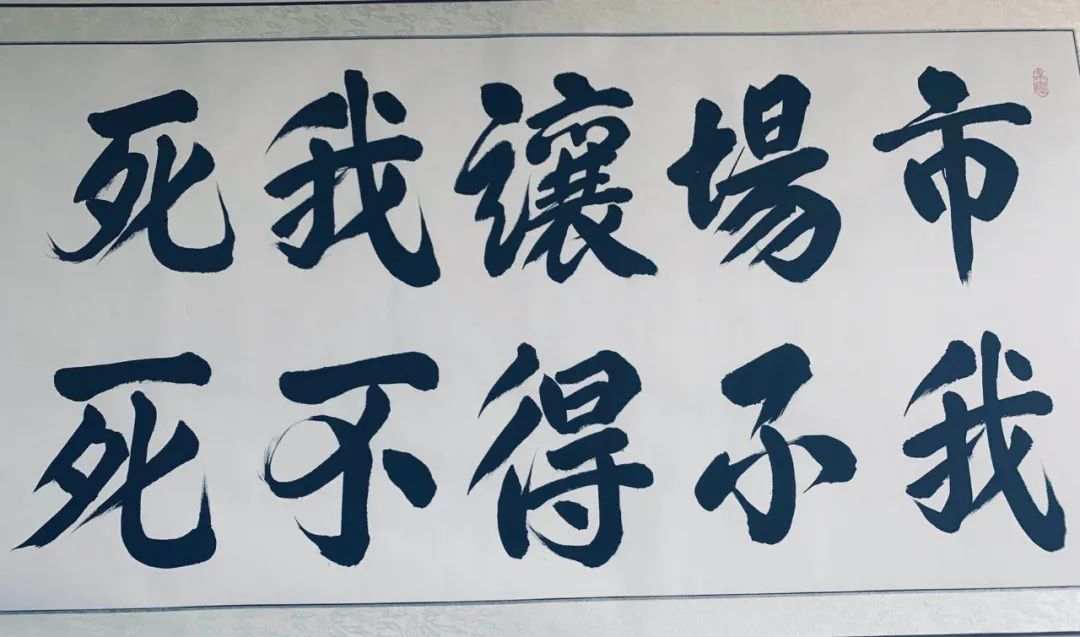 市場讓我死
我不得不死